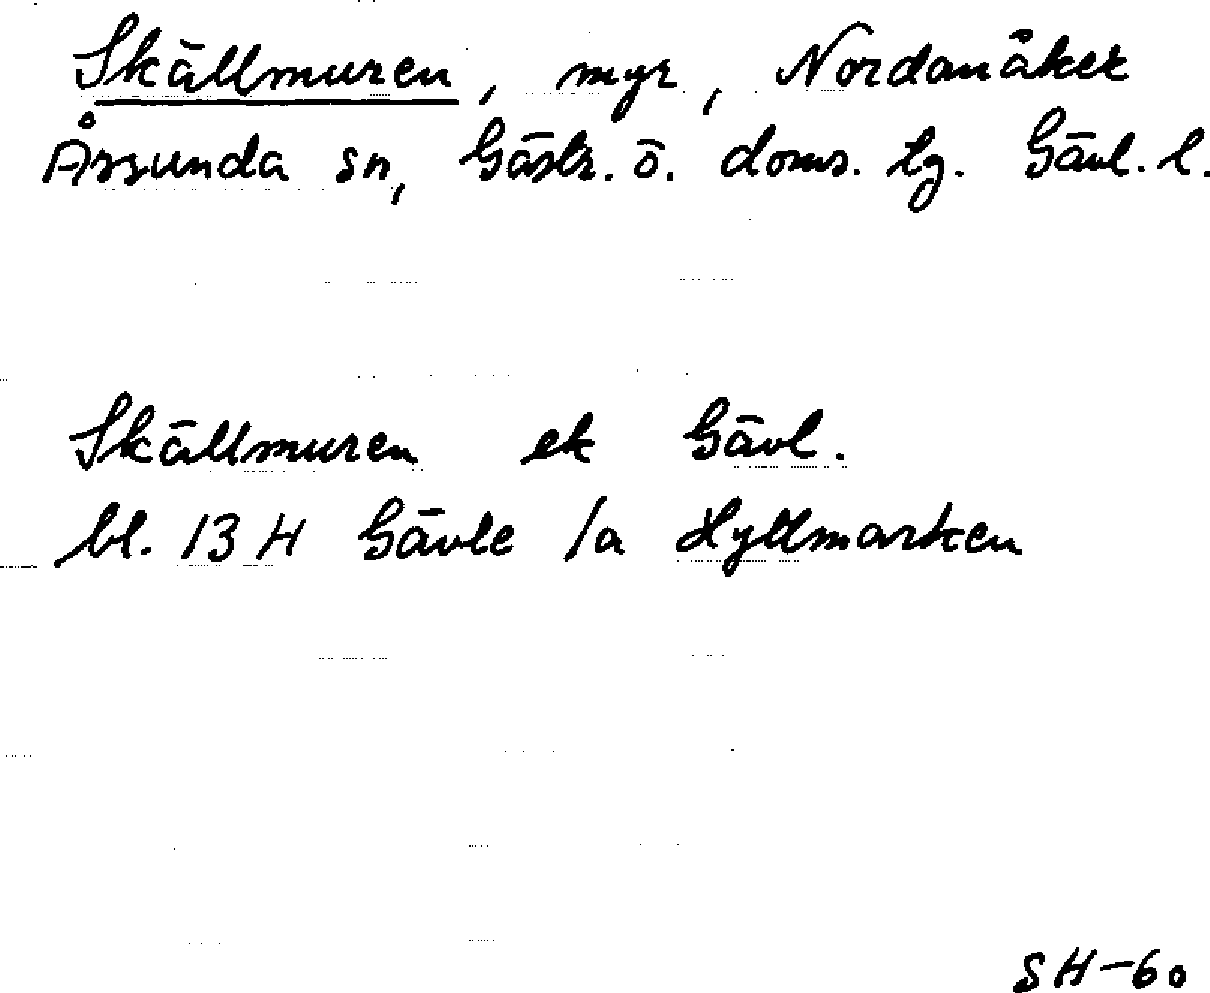 Skällmuren, myr, Nordanåker
Årsunda sn, Gästr. ö. doms. tg. Gävl. l.
Skällmuren ek Gävl.
bl. 13 H Gävle 1a Hyllmarken
SH-60